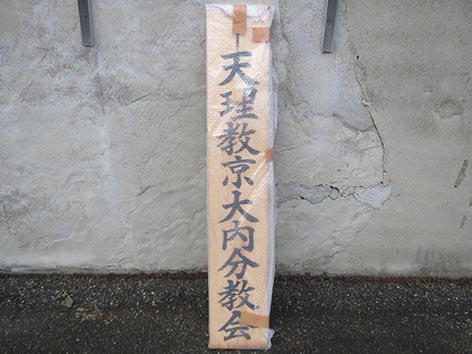 天理教京大内分教会